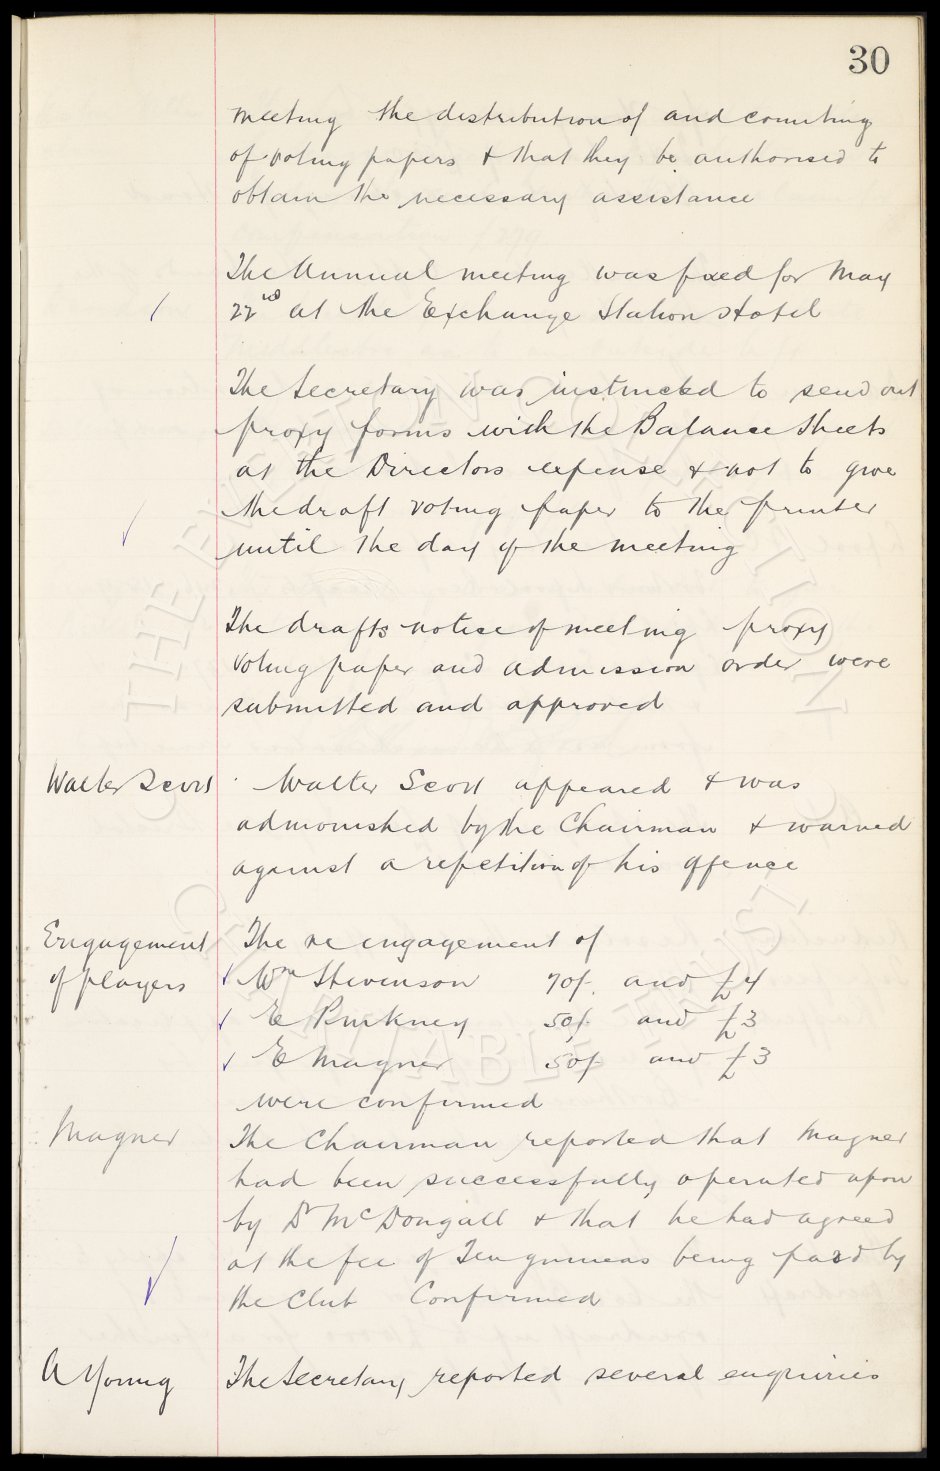 30
meeting the distribution of and counting
of voting papers & that they be authorised to
obtain the necessary assistance
The Annual meeting was fixed for May
22nd at the Exchange Station Hotel
The Secretary was instructed to send out
proxy forms with the Balance Sheets
at the Directors expense & not to give
the draft voting paper to the printer
until the day of the meeting
The drafts notice of meeting proxy
voting paper and admission order were
submitted and approved
Walter Scott Walter Scott appeared & was
admonished by the Chairman & warned
against a repetition of his offence
Engagement The re engagement of
of players Wm Stevenson 70/- and £4
E Pinkney 50/- and £3
E Magner 50/- and £3
were confirmed
Magner The Chairman reported that Magner
had been successfully operated upon
by Dr McDougall & that he had agreed
at the fee of Ten guineas being paid by
the Club Confirmed
A Young The Secretary reported several enquiries
THE EVERTON COLLECTION
CHARITABLE TRUST